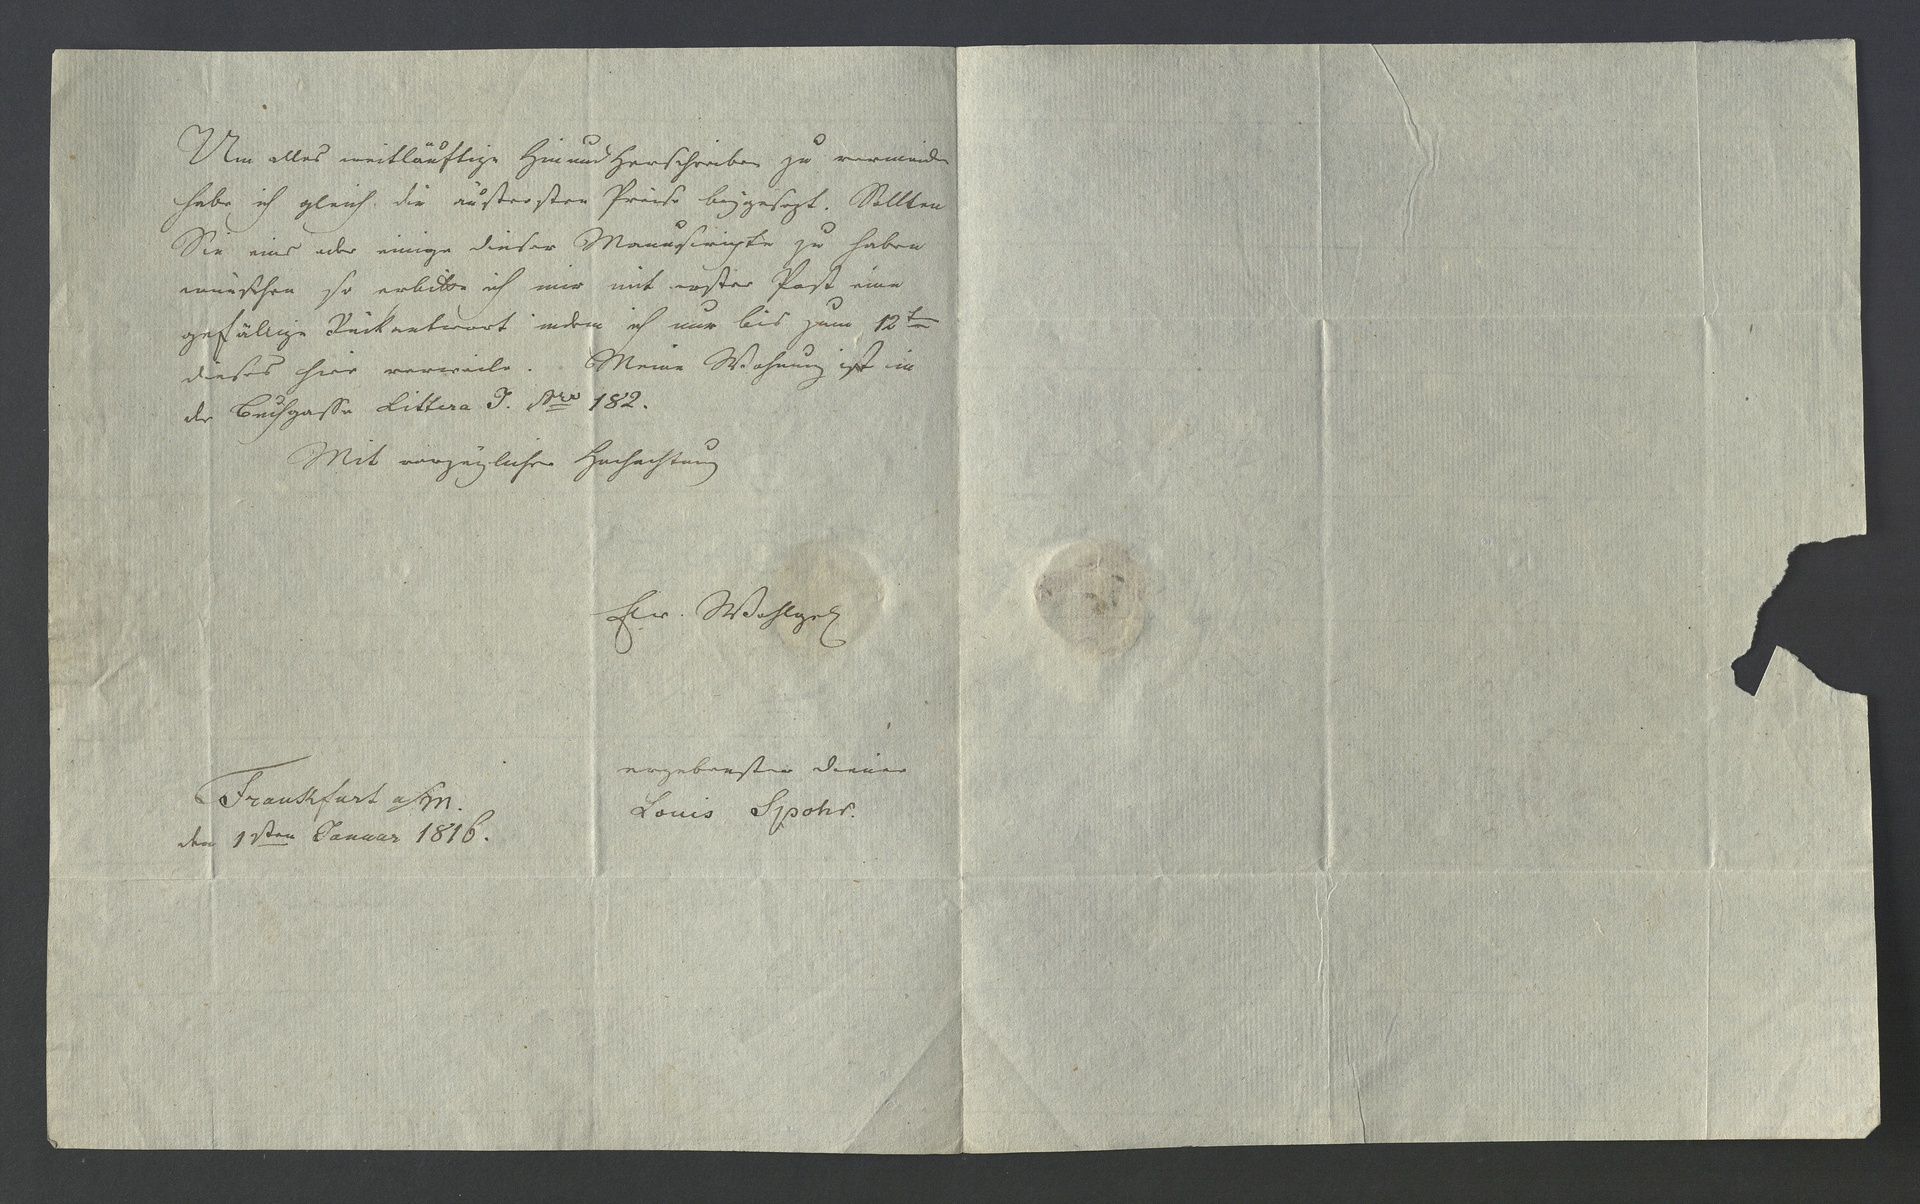 Um alles weitläuftige Hin und Herschreiben zu vermeiden
habe ich gleich die äußersten Preise beygesezt. Sollten
Sie eins oder einige dieser Manuscripte zu haben
wünschen so erbitte ich mir mit erster Post eine
gefällige Rückantwort indem ich nur bis zum 12ten
dieses hier verweile. Meine Wohnung ist in
der Buchgasse Littera J. Nro 182.
Mit vorzüglicher Hochachtung
Ew. Wohlgeb
ergebenster Diener
Louis Spohr.
Frankfurt a/m.
den 1sten Januar 1816.